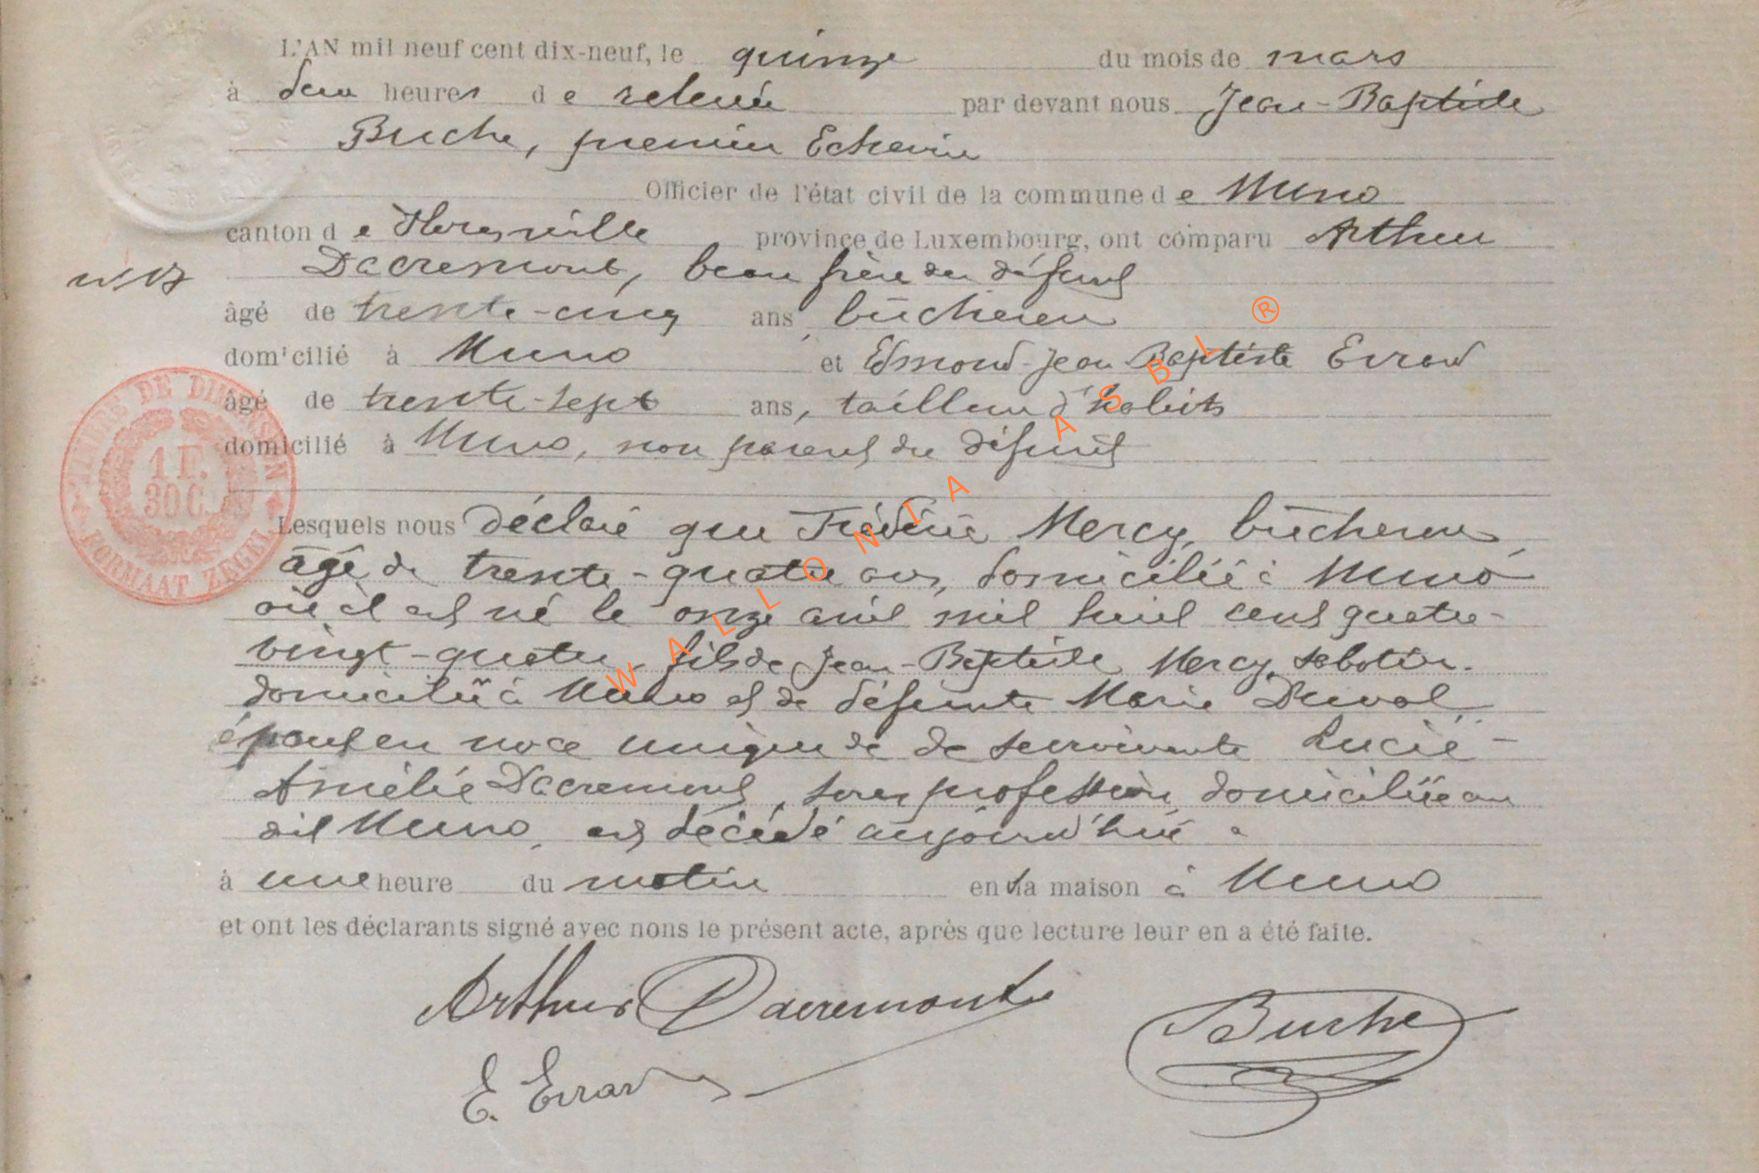 L'AN mil neuf cent dix-neuf, le quinze du mois de mars
à deux heures de relevée par devant nous Jean-Baptiste
Buche, premier Echevin
Officier de l'état civil de la commune de Muno
canton de Florenville province de Luxembourg, ont comparu Arthur
Dacremont, beau frère du défunt
âgé de trente-cinq ans bûcheron
domicilié à Muno et Edmond-Jean Baptiste Errard
âgé de trente-sept ans, tailleur d'habits
domicilié à Muno, non parent du défunt
TIMBRE DE DIMENSION
1 F.
30 C.
FORMAAT ZEGEL
Lesquels nous déclaré que Mercy, bûcheron,
âgé de trente-quatre ans, domicilié à Muno
où il est né le onze avril mil huit cent quatre-
vingt-quatre, fils de Jean-Baptiste Mercy, sabotier
domicilié à Muno et de défunte Marie Duval
époux en noce unique de de survivante Lucie-
Amélie Dacremont, sans profession, domiciliée au
dit Muno, est décédé aujourd'hui
à une heure du matin en sa maison à Muno
et ont les déclarants signé avec nons le présent acte, après que lecture leur en a été faite.
Arthur Dacremont
Buche
E. Errard
WALLONIA ASBL ®